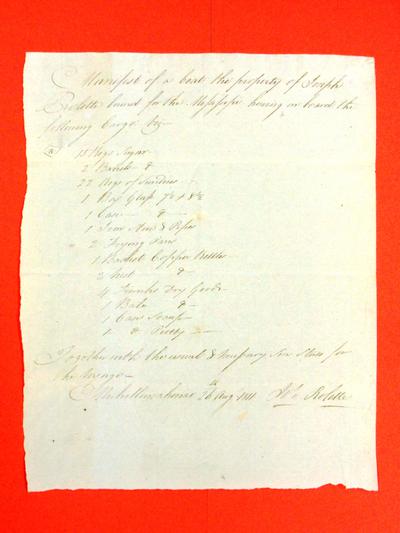 Manifest of a boat the property of Joseph
Rolette bound for the Mississipi having on board the
following Cargo
15 Kegs Sugar
2 Barrels &
22 Kegs of Sundries
1 Box Glass 7½ + 8½
1 Case &
1 &
2 Frying Pans
1 Basket Copper Kettles
2 Nest &
4 Trunks Dry Goods
1 Bale &
1 Case Soap
1 &
Together with the usual & necessary Stores for
the voyage
Michilimackinac 26 Aug 1811 Jos Rolette